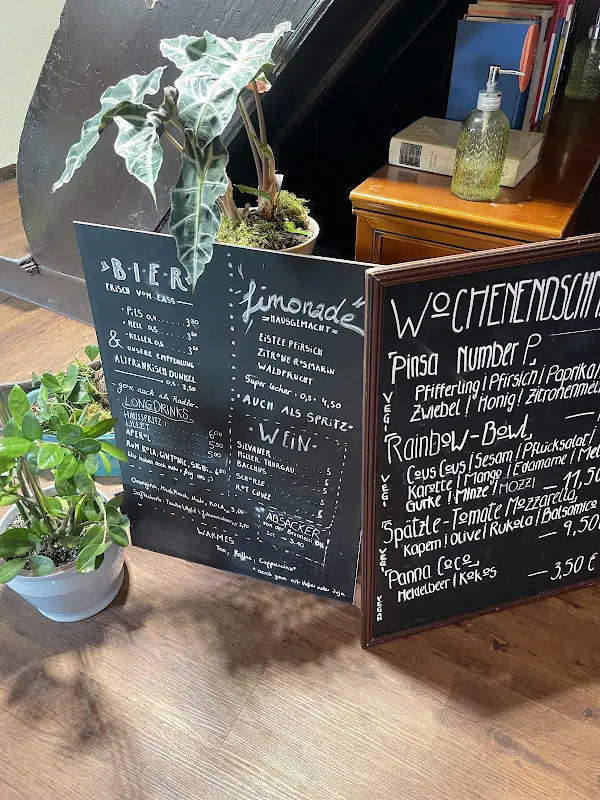 "BIER"
FRISCH VOM FASS
· PILS 0,4
· HELL 0,5
· KELLER 0,5
& UNSERE EMPFEHLUNG
ALTFRÄNKISCH DUNKEL
0,5 · 3,50
· gern auch als Radler ·
LONGDRINKS
HAUSSPRITZ
LILLET
APEROL 6,00
RUM KOLA, GIN TONIC 5,00
Wir haben noch mehr, frag uns ;)
WARMES
Tee, Kaffee, Cappuccino*
* auch gern mit Hafer oder Soja
Limonade
= HAUSGEMACHT =
EISTEE PFIRSICH
ZITRONE ROSMARIN
WALDFRUCHT
Super lecker · 0,5 · 4,50
*AUCH ALS SPRITZ*
· WEIN ·
SILVANER 5
MÜLLER THURGAU 5
BACCHUS 5
SCHORLE 5
ROT CUVEÉ 5
ABSACKER
von der Brennerei
2cl
WOCHENENDSCHM
Pinsa Number P,
Pfifferling | Pfirsich | Paprika
Zwiebel | Honig | Zitronenme
VEGI
Rainbow-Bowl,
Cous Cous | Sesam | Pflücksalat |
Karotte | Mango | Edamame | Mel
Gurke | Minze | MOZZI — 11,50
VEGI
Spätzle-Tomate Mozzarella,
Kapern | Olive | Rukola | Balsamico
— 9,50
VEGI
Panna Coco
Heidelbeer | Kokos — 3,50 €
VEGA